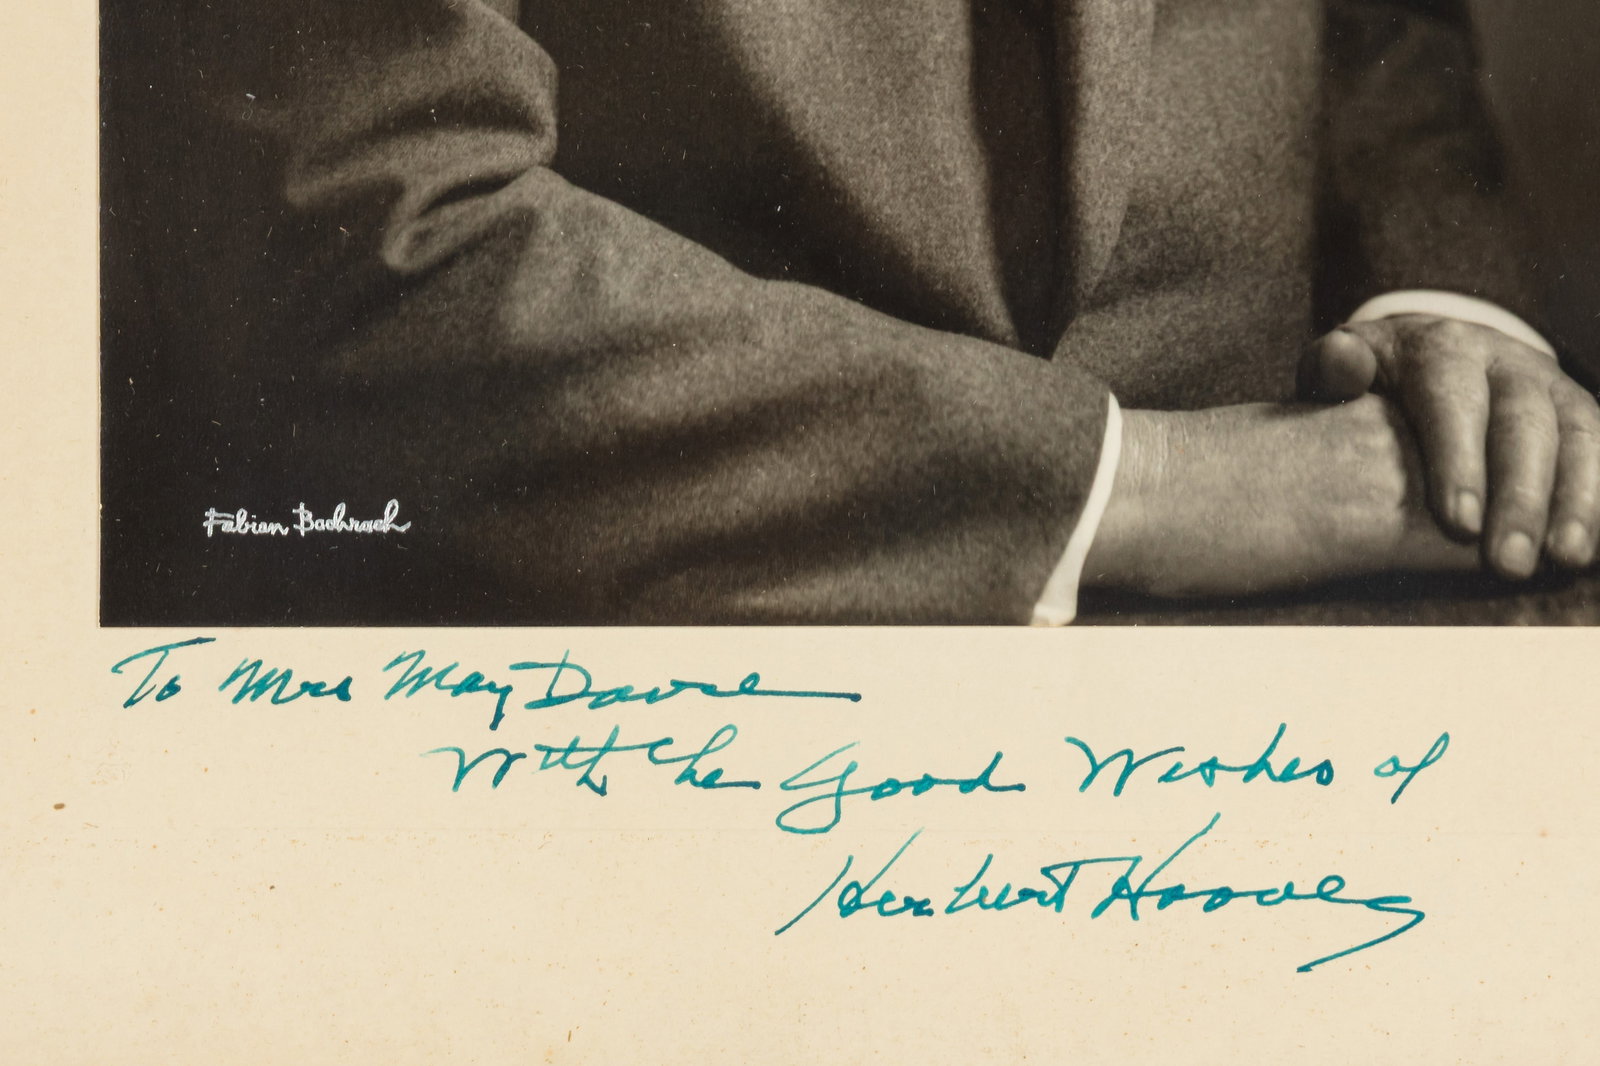 Fabian Bachrach
To Mrs May Davie
With the Good Wishes of
Herbert Hoover